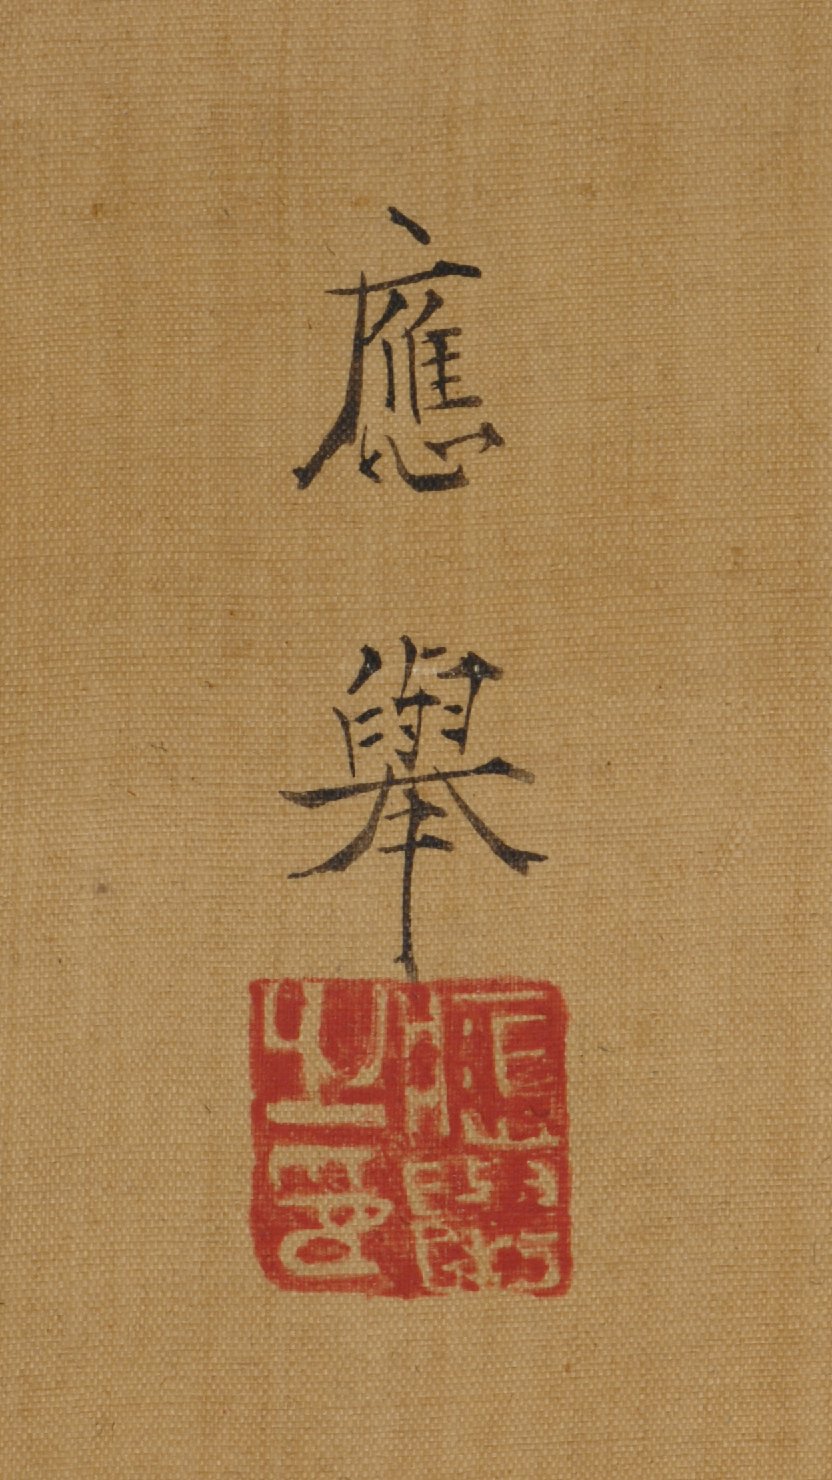 應舉
應舉之印